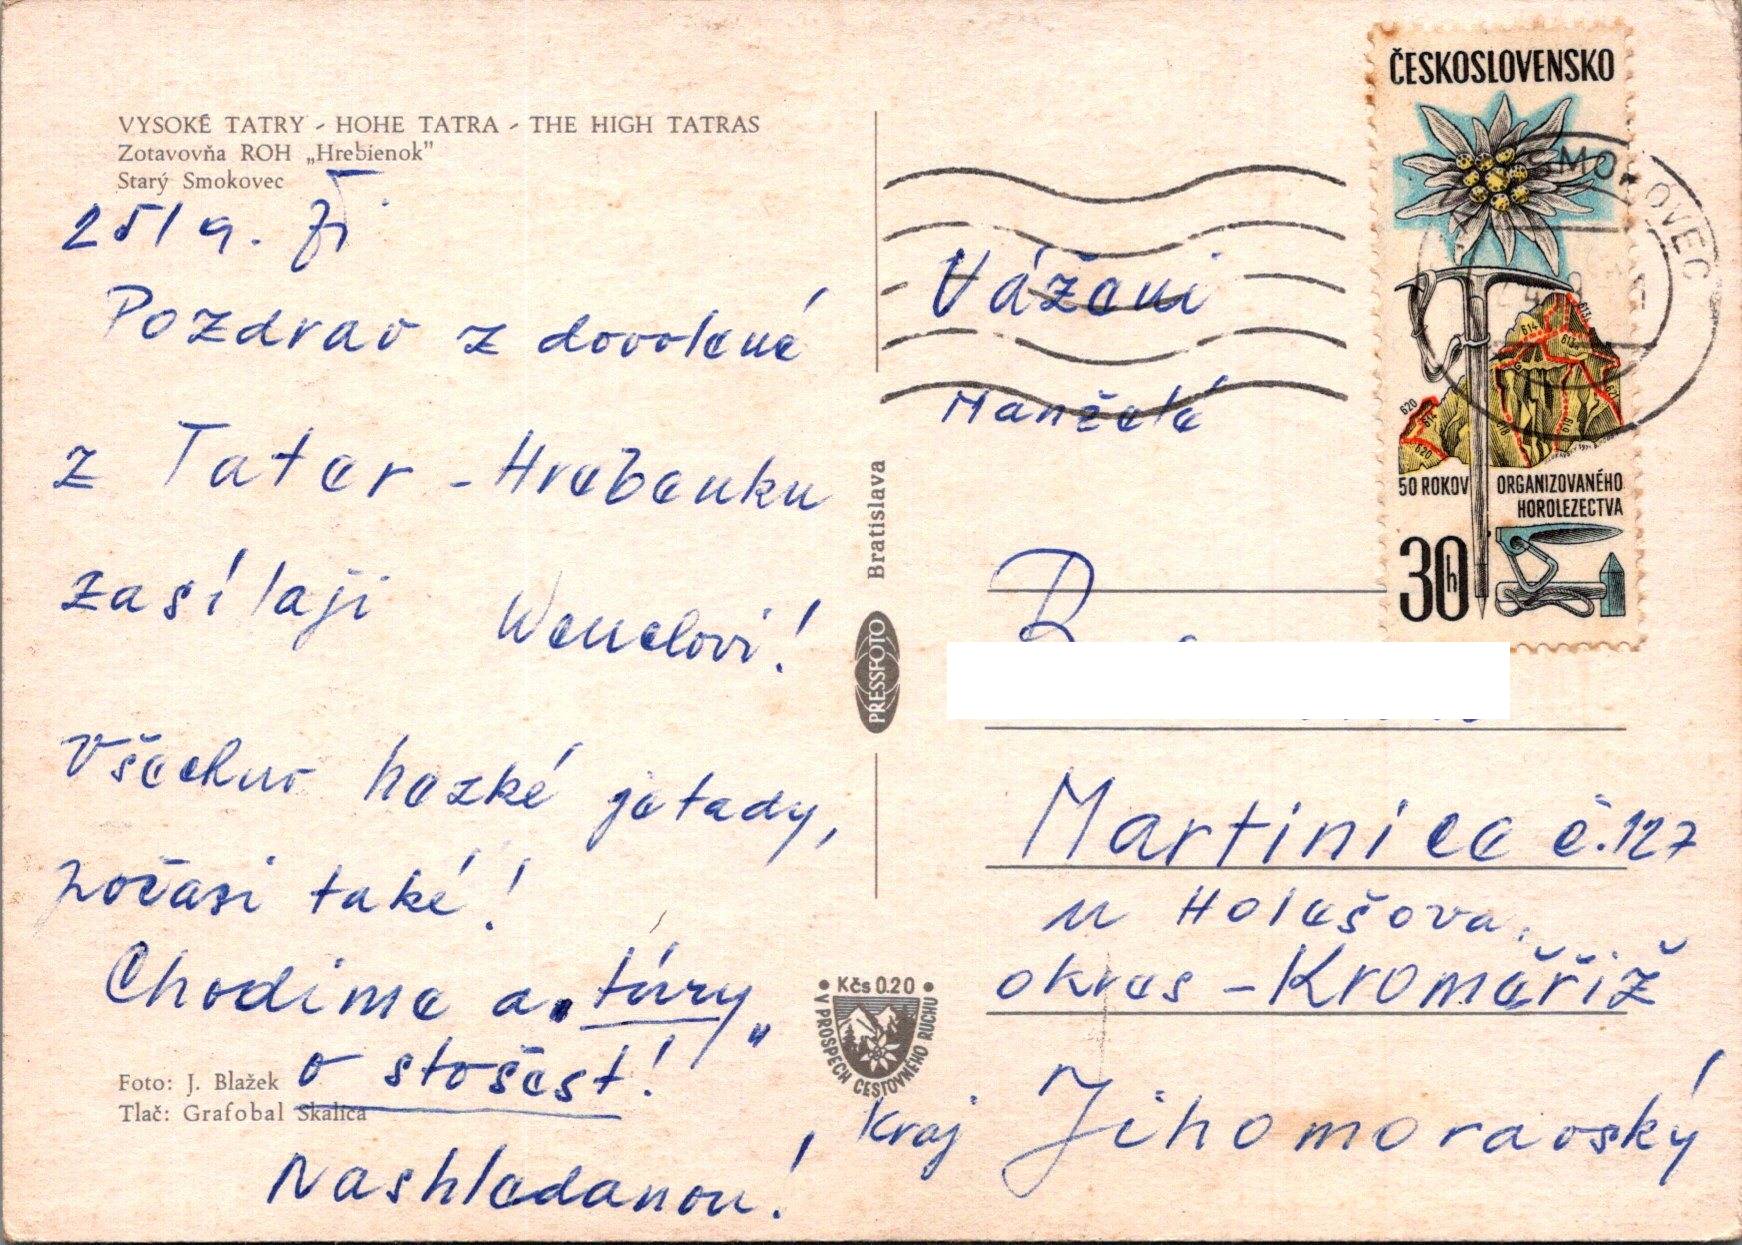 VYSOKÉ TATRY - HOHE TATRA - THE HIGH TATRAS
Zotavovňa ROH „Hrebienok"
Starý Smokovec
25/9. 71
Pozdrav z dovolené
z Tater - Hrebenku
zasílají Wenclovi!
Všechno hezké jetady,
počasi také!
Chodíme a „túry"
o stošest!
Nashledanou!
Foto: J. Blažek
Tlač: Grafobal Skalica
Bratislava
PRESSFOTO
Kčs 0.20
V PROSPECH CESTOVNÉHO RUCHU
ČESKOSLOVENSKO
620
614
620
614
613
613
618
619
621
50 ROKOV ORGANIZOVANÉHO
HOROLEZECTVA
30h
SMOKOVEC
Vážení
Manželé
Martinice č. 127
u Holešova
okres - Kroměříž
kraj Jihomoravský